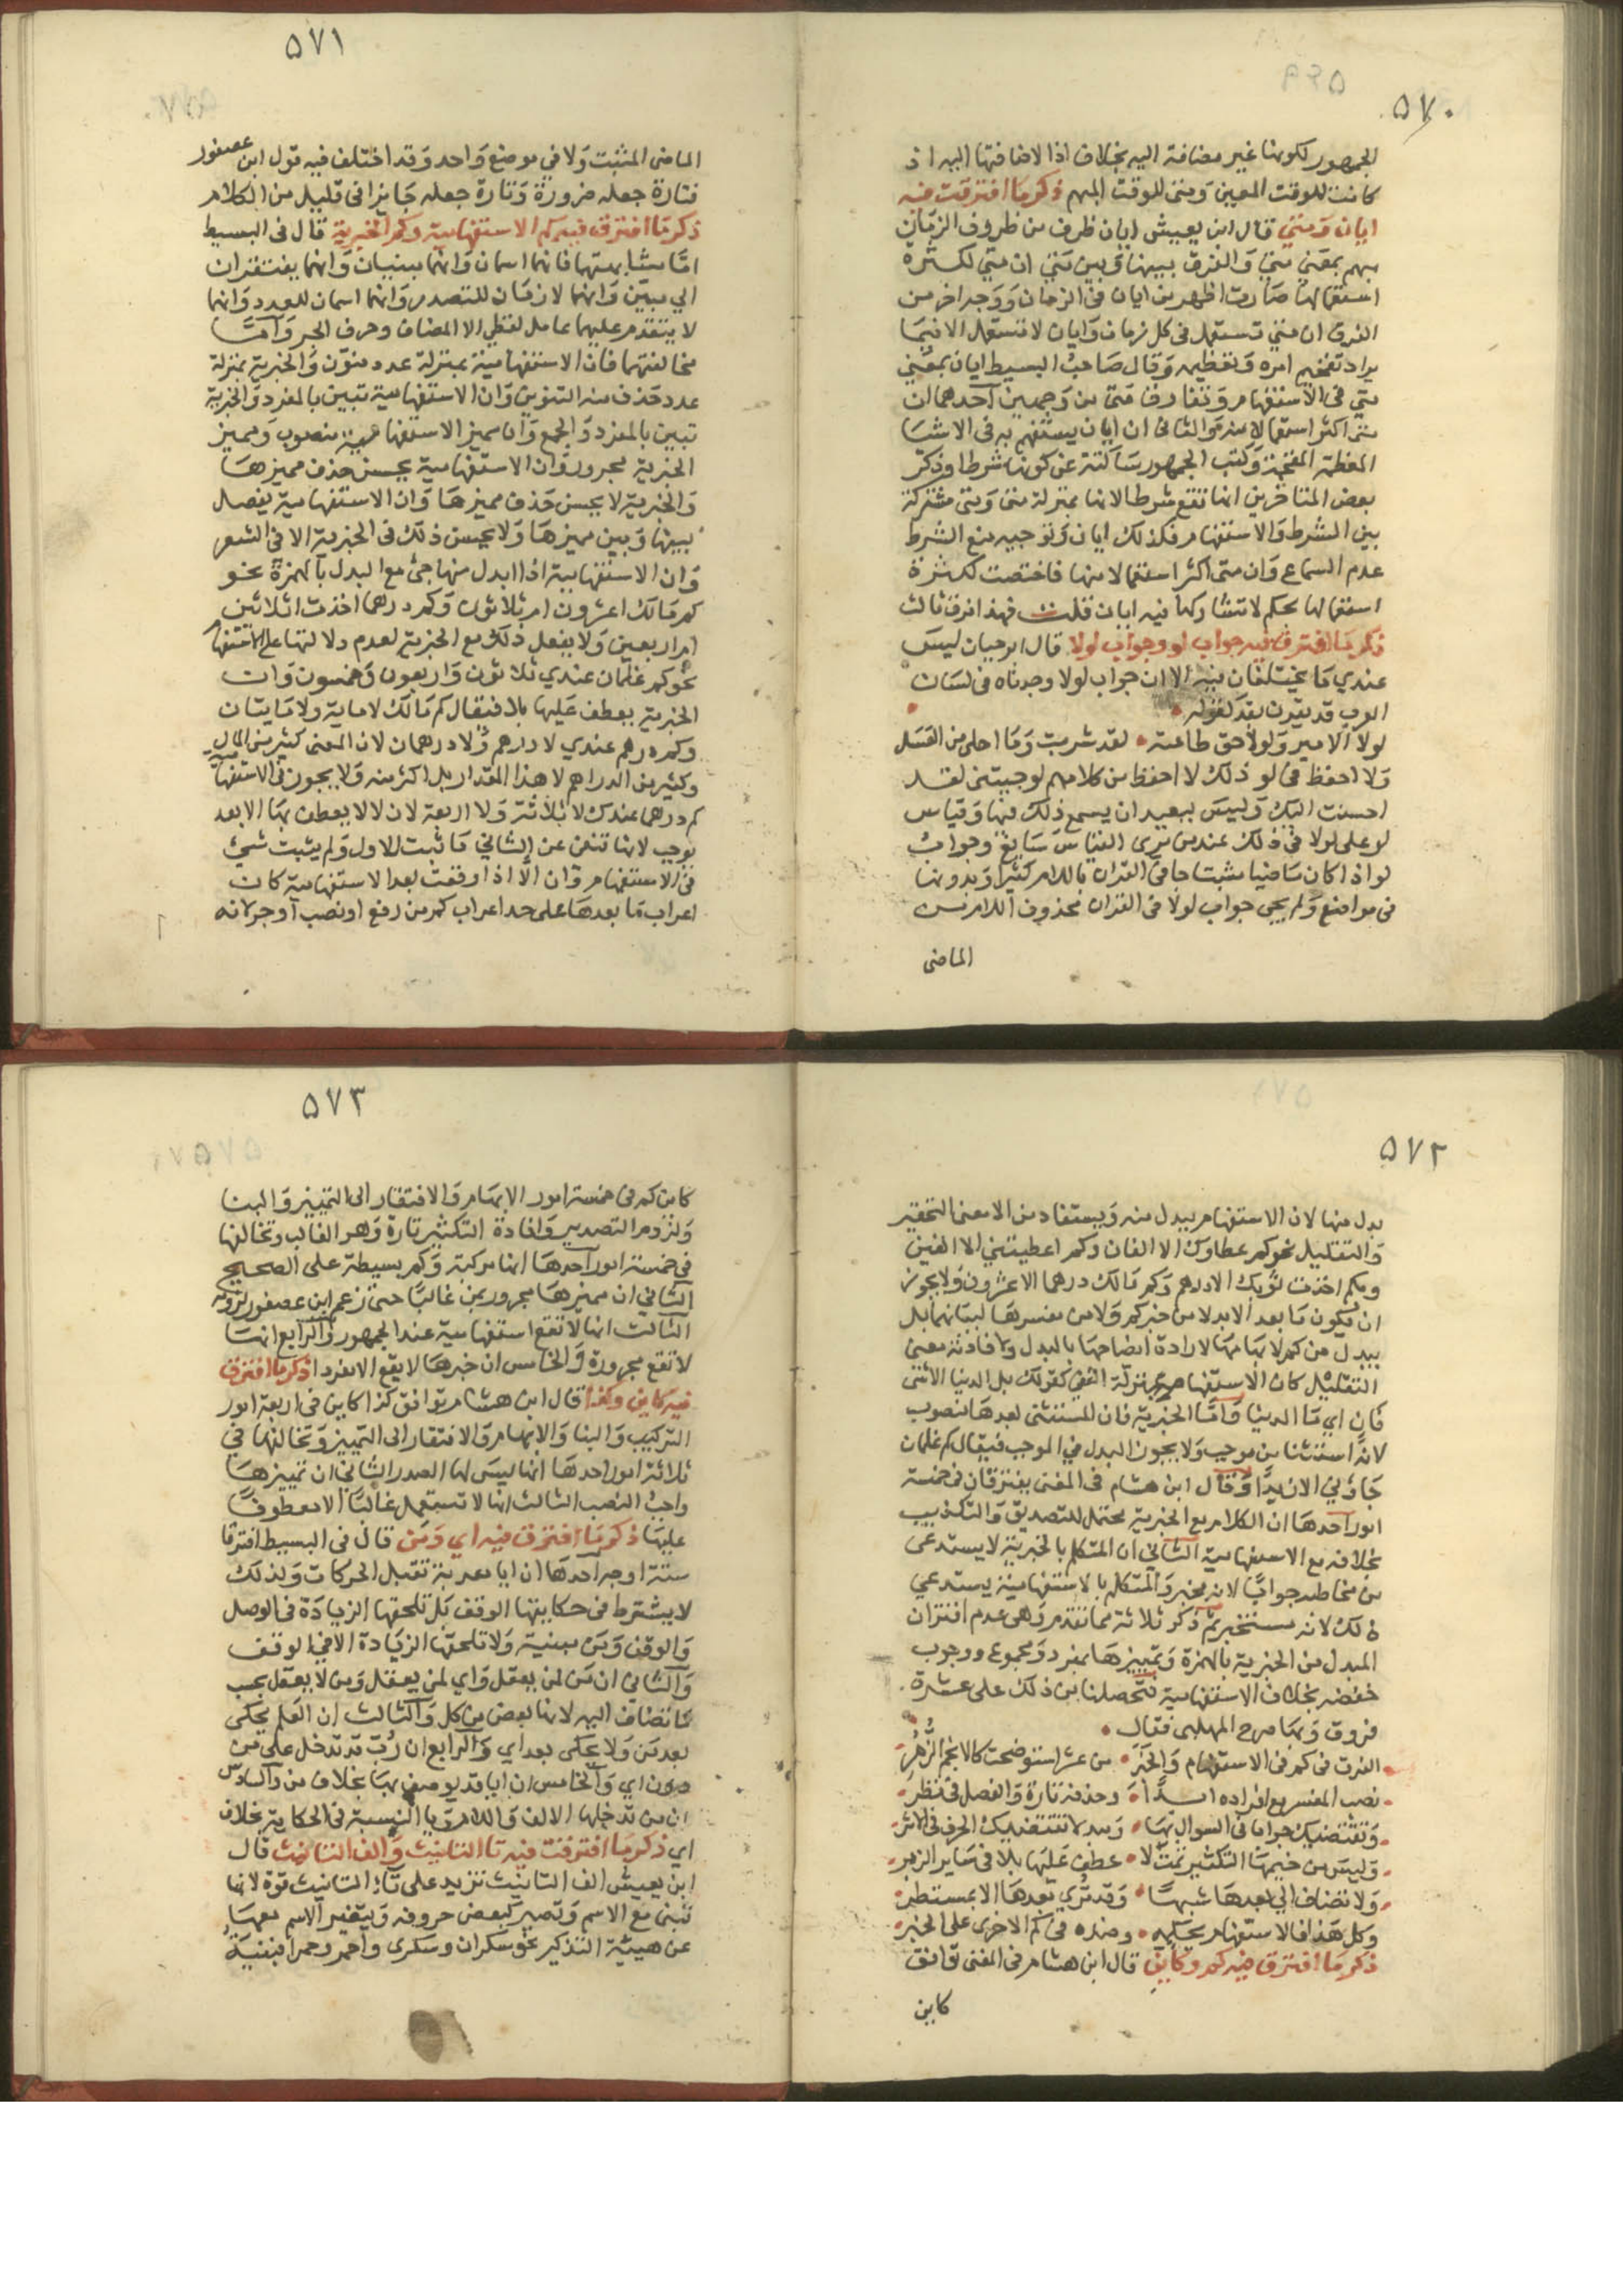 ٥٧٠
الجمهور لكونها غير مضافة اليه بخلاف اذا لاضافتها اليه اذ
كانت للوقت المعين ومتى للوقت المبهم ذكر ما افترقت فيه
ايان ومتى قال ابن يعيش ايان ظرف من ظروف الزمان
مبهم بمعنى متى والفرق بينها وبين متى ان متى لكثرة
استعمالها صارت اظهر من ايان في الزمان ووجه اخر من
الفرق ان متى تستعمل في كل زمان وايان لا تستعمل الا فيما
يراد تفخيم امره وتعظيمه وقال صاحب البسيط ايان بمعنى
متى في الاستفهام وتفارق متى من وجهين احدهما ان
متى اكثر استعمالا منه والثاني ان ايان يستفهم به في الاشيا
المعظمة المفخمة وكتب الجمهور ساكتة عن كونها شرطا وذكر
بعض المتاخرين انها تقع شرطا لانها بمنزلة متى ومتى مشتركة
بين الشرط والاستفهام فكذلك ايان وتوجيه منع الشرط
عدم السماع وان متى اكثر استعمالا منها فاختصت لكثرة
استعمالها بحكم لا تشاركها فيه ايان قلت فهذا فرق ثالث
ذكر ما افترق فيه جواب لو وجواب لولا قال ابو حيان ليس
عندي ما يختلفان فيه الا ان جواب لولا وجدناه في لسان
العرب قد يقرن بقد كقوله
لولا الامير ولولا حق طاعته لقد شربت دما احلى من العسل
ولا احفظ في لو ذلك لا احفظ من كلامهم لو جيتني لقد
احسنت اليك وليس ببعيد ان يسمع ذلك فيها وقياس
لو على لولا في ذلك عند من يرى القياس سايغ وجواب
لو اذا كان ماضيا مثبتا جا في القران باللام كثيرا وبدونها
في مواضع ولم يجي جواب لولا في القران محذوف اللام من
الماضى
٥٧١
الماضى المثبت ولا في موضع واحد وقد اختلف فيه قول ابن عصفور
فتارة جعله ضرورة وتارة جعله جايزا في قليل من الكلام
ذكر ما افترق فيه كم الاستفهامية وكم الخبرية قال في البسيط
اما مشابهتهما فانهما اسمان وانهما مبنيان وانهما يفتقران
الي مبين وانهما لازمان للتصدر وانهما اسمان للعدد وانهما
لا يتقدم عليهما عامل لفظي الا المضاف وحرف الجر واما
مخالفتهما فان الاستفهامية بمنزلة عدد منون والخبرية بمنزلة
عدد حذف منه التنوين وان الاستفهامية تبين بالمفرد والخبرية
تبين بالمفرد والجمع وان مميز الاستفهامية منصوب ومميز
الخبرية مجرور وان الاستفهامية يحسن حذف مميزها
والخبرية لا يحسن حذف مميزها وان الاستفهامية يفصل
بينها وبين مميزها ولا يحسن ذلك في الخبرية الا في الشعر
وان الاستفهامية اذا ابدل منها جئ مع البدل بالهمزة نحو
كم مالك اعشرون ام ثلاثون وكم درهما اخذت اثلاثين
ام اربعين ولا يفعل ذلك مع الخبرية لعدم دلالتها على الاستفهام
نحو كم غلمان عندي ثلاثون واربعون وخمسون وان
الخبرية يعطف عليها بلا فيقال كم مالك لا ماية ولا مايتان
وكم درهم عندي لا درهم ولا درهمان لان المعنى كثير من المال
وكثير من الدراهم لا هذا المقدار بل اكثر منه ولا يجوز في الاستفهامية
كم درهما عندك لا ثلاثة ولا اربعة لان لا لا يعطف بها الا بعد
موجب لانها تنفي عن الثاني ما ثبت للاول ولم يثبت شئ
في الاستفهام وان الا اذا وقعت بعد الاستفهامية كان
اعراب ما بعدها على حد اعراب كم من رفع او نصب او جر لانه
٥٧٢
بدل منها لان الاستفهام يبدل منه ويستفاد من الا معنى التحقير
والتقليل نحو كم عطاوك الا الفان وكم اعطيتني الا الفين
وبكم اخذت ثوبك الا درهم وكم مالك درهما الا عشرون ولا يجوز
ان يكون ما بعد الا بدلا من خبر كم ولا من مفسرها لبيانهما بل
يبدل من كم لابهامها لارادة ايضاحها بالبدل ولافادته معنى
التقليل كان الاستفهام بمنزلة النفي كقولك هل الدنيا الا شي
فان اي ما الدنيا واما الخبرية فان المستثنى بعدها منصوب
لانه استثنا من موجب ولا يجوز البدل في الموجب فيقال كم غلمان
جاؤني الا زيدا وقال ابن هشام في المغني يفترقان في خمسة
امور احدها ان الكلام مع الخبرية محتمل للتصديق والتكذيب
بخلافه مع الاستفهامية الثاني ان المتكلم بالخبرية لا يستدعى
من مخاطبه جوابا لانه مخبر والمتكلم بالاستفهامية يستدعي
ذلك لانه مستخبر ثم ذكر ثلاثة مما تقدم وهي عدم اقتران
المبدل من الخبرية بالهمزة وتمييزها بمفرد ومجموع ووجوب
خفضه بخلاف الاستفهامية فتحصلنا من ذلك على عشرة
فروق وبها صرح المهلبي فقال
الفرق في كم في الاستفهام والخبر من عشر استوضحت كالانجم الزهر
نصب المفسر مع افراده ابدا وحذفه تارة والفصل في نظر
وتقتضيك جوابا في السوال بها وبعد لا تقتضيك الحرف في الاثر
وليس من خيمها التكثير ثمت لا عطف عليها بلا في ساير الزبر
ولا تضاف الي ما بعدها شبها وقد تري بعدها الا بمستطر
وكل هذا في الاستفهام يحكمه وضده في كم الاخرى على الخبر
ذكر ما افترق فيه كم وكاين قال ابن هشام في المغنى توافق
كاين
٥٧٣
كاين كم في خمسة امور الابهام والافتقار الى التمييز والبنا
ولزوم التصدير وافادة التكثير تارة وهو الغالب وتخالفها
في خمسة امور احدها انها مركبة وكم بسيطة على الصحيح
الثاني ان مميزها مجرور بمن غالبا حتى زعم ابن عصفور لزومه
الثالث انها لا تقع استفهامية عند الجمهور والرابع انها
لا تقع مجرورة والخامس ان خبرها لا يقع الا مفردا ذكر ما افترق
فيه كاين وكذا قال ابن هشام توافق كذا كاين في اربعة امور
التركيب والبنا والابهام والافتقار الى التمييز وتخالفها في
ثلاثة امور احدها انها ليس لها الصدر الثاني ان تمييزها
واجب النصب الثالث انها لا تستعمل غالبا الا معطوفا
عليها ذكر ما افترق فيه اي ومن قال في البسيط افترقا
ستة اوجه احدها ان ايا معربة تقبل الحركات ولذلك
لا يشترط في حكايتها الوقف بل تلحقها الزيادة في الوصل
والوقف ومن مبنية ولا تلحقها الزيادة الا في الوقف
والثاني ان من لمن يعقل واي لمن يعقل ومن لا يعقل بحسب
ما تضاف اليه لانها بعض من كل والثالث ان العلم يحكى
بعد من ولا يحكى بعد اي والرابع ان رب قد تدخل على من
دون اي والخامس ان ايا قد يوصف بها بخلاف من والسادس
ان من تدخلها الالف واللام ويا النسبة في الحكاية بخلاف
اي ذكر ما افترقت فيه تا التانيث والف التانيث قال
ابن يعيش الف التانيث تزيد على تاء التانيث قوة لانها
تبنى مع الاسم وتصير كبعض حروفه ويتغير الاسم معها
عن هيئة التذكير نحو سكران وسكرى واحمر وحمرا فبنية